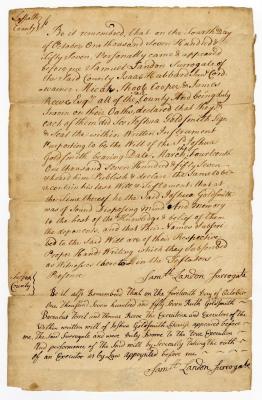 Suffolk County ss
Be it remembered, that on the fourth Day
of October One thousand Seven Hundred &
Fifty Seven Personally came & appeared
before me Samuel Landon Surrogate of
the said County Isaac Hubbard
Micah Moor Cooper & James
Reeve Esqr all of the County And being duly
Sworn on their Oaths declared that they
each of them did see Joshua Goldsmith Sign
& Seal the within Written Instrument
Purporting to be the Will of the sd Joshua
Goldsmith bearing Date March fourteenth
One thousand Seven Hundred fifty Seven &
heard him Publish & declare the same to be
contain his last Will & Testament that at
the time thereof he the said Joshua Goldsmith
was of Sound disposing mind And Memory
to the best of the Knowledge & belief of them
the deponents, and that their Names Subscri
bed to the said Will are of their Respective
Proper Hand Writing which they Subscribed
as Witnesses thereto in the Testators
Presence
Saml Landon Surrogate
Suffolk County
Be it also Remembered that on the fourteenth Day of October
One thousand Seven hundred and fifty Seven Ruth Goldsmith
and Thomas Reeve the Executrix and Executors of the
Within written will of Joshua Goldsmith appeared before
me the said Surrogate and were duly Sworn to the true Execution
And performance of the said will by Severally taking the oath
of an Executor as by Law appointed before me
Saml Landon Surrogate